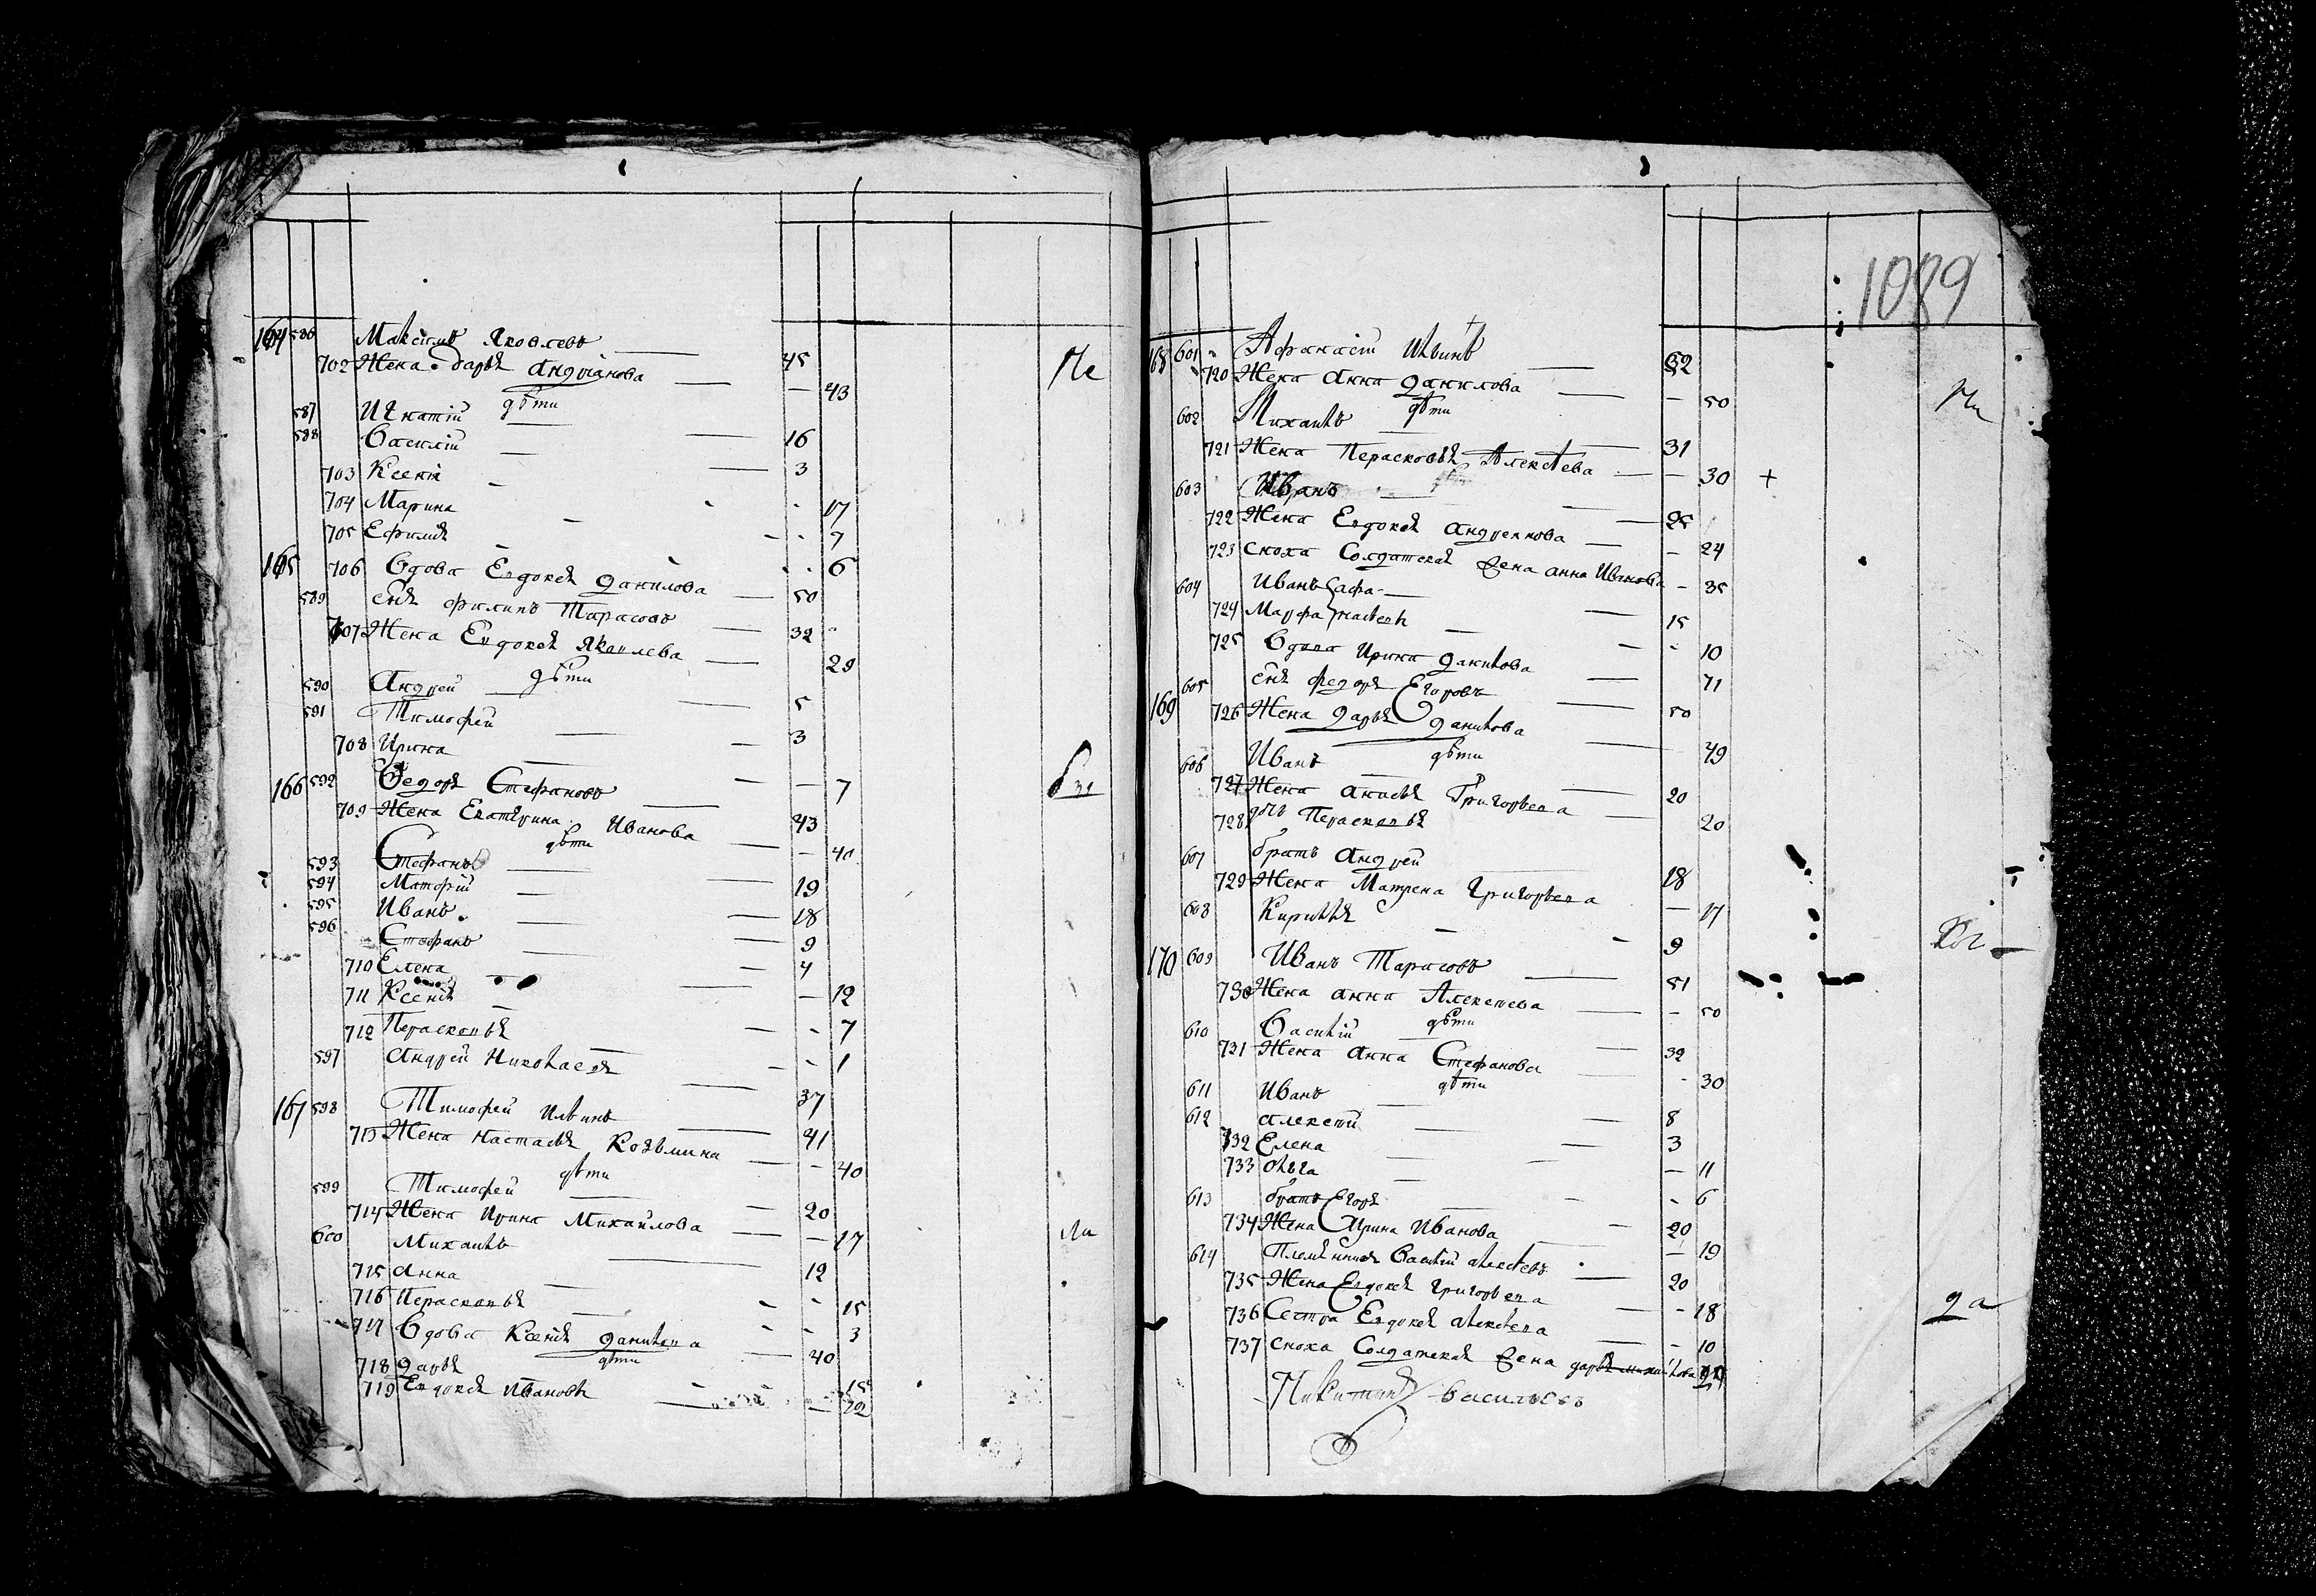 164 586 Максимъ Яковлевъ — 45
702 Жена Дарья Андрианова — — 43
дѣти
587 Игнатій — 16
588 Василій — 3
703 Ксенія — 17
704 Марина — 7
705 Ефимія — 6
165 706 Вдова Евдокея Данилова — 50
589 сынъ Филипъ Тарасовъ — 32
707 Жена Евдокея Яковлева — 29
дѣти
590 Андрей — 5
591 Тимофей — 3
708 Ирина — — 7
166 592 Федоръ Стефановъ — 43
709 Жена Екатерина Иванова — — 40
дѣти
593 Стефанъ — 19
594 Матфій — 18
595 Иванъ — 9
596 Стефанъ — 4
710 Елена — — 12
711 Ксенія — - 7
712 Перасковья — - 1
597 Андрей Николаевъ — 37
167 598 Тимофей Ильинъ — 41
713 Жена Настасья Козьмина — — 40
дѣти
599 Тимофей — 20
714 Жена Ирина Михайлова — — 17
600 Михаилъ — 12
715 Анна — - 15
716 Перасковья — - 3
717 Вдова Ксенія Данилова — 40
дѣти
718 Дарья - - 15
719 Евдокея Ивановы — — 12
1089
168 601 Афанасій Ильинъ — 52
720 Жена Анна Данилова — — 50
дѣти
602 Михаилъ — 31
721 Жена Перасковья Алексѣева — — 30 +
603 Иванъ — 25
722 Жена Евдокея Андреянова — — 24
723 сноха Солдатская жена Анна Иванова - 35
604 Иванъ Афа- — 15
724 Марфа насьевы — - 10
725 Вдова Ирина Данилова — 71
169 605 сынъ Федоръ Егоровъ — 50
726 Жена Дарья Данилова — 49
дѣти
606 Иванъ — 20
727 Жена Анисья Григорьева — 20
728 дочь Перасковья
607 братъ Андрей — 18
729 Жена Матрена Григорьева — 17
608 Кирилъ — 9
170 609 Иванъ Тарасовъ — 51
730 Жена Анна Алексѣева — - 50
дѣти
610 Василій — 32
731 Жена Анна Стефанова — - 30
дѣти
611 Иванъ — 8
612 Алексѣй — 3
732 Елена — — 11
733 Ольга — - 6
613 братъ Егоръ — 20
734 Жена Ирина Иванова — — 19
614 Племянникъ Василій Алексѣевъ — 20
735 Жена Евдокея Григорьева — - 18
736 Сестра Евдокея Алексѣева — - 10
737 сноха Солдатская жена Дарья Михайлова
Никитинъ Васильевъ